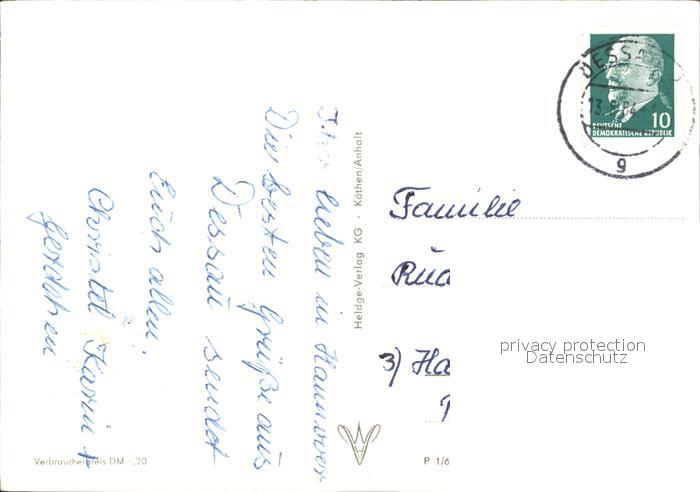 Ihr lieben in Hannover
Die besten Grüße aus
Dessau sendet
Euch allen.
Christel Karin +
Heldge-Verlag KG · Köthen/Anhalt
DESSAU
10
DEUTSCHE
DEMOKRATISCHE REPUBLIK
g
Familie
Rüd
3) Ha
privacy protection
Datenschutz
Verbraucherpreis DM -,20
P 1/6